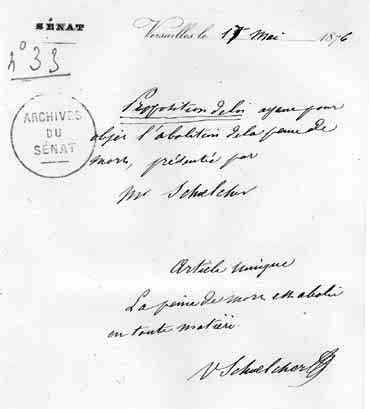 SÉNAT
Versailles, le 17 Mai 1876
N° 33
ARCHIVES
DU
SÉNAT
Proposition de loi ayant pour
objet l'abolition de la peine de
mort, présentée par
Mr Schœlcher
Article unique
La peine de mort est abolie
en toute matière
V Schœlcher